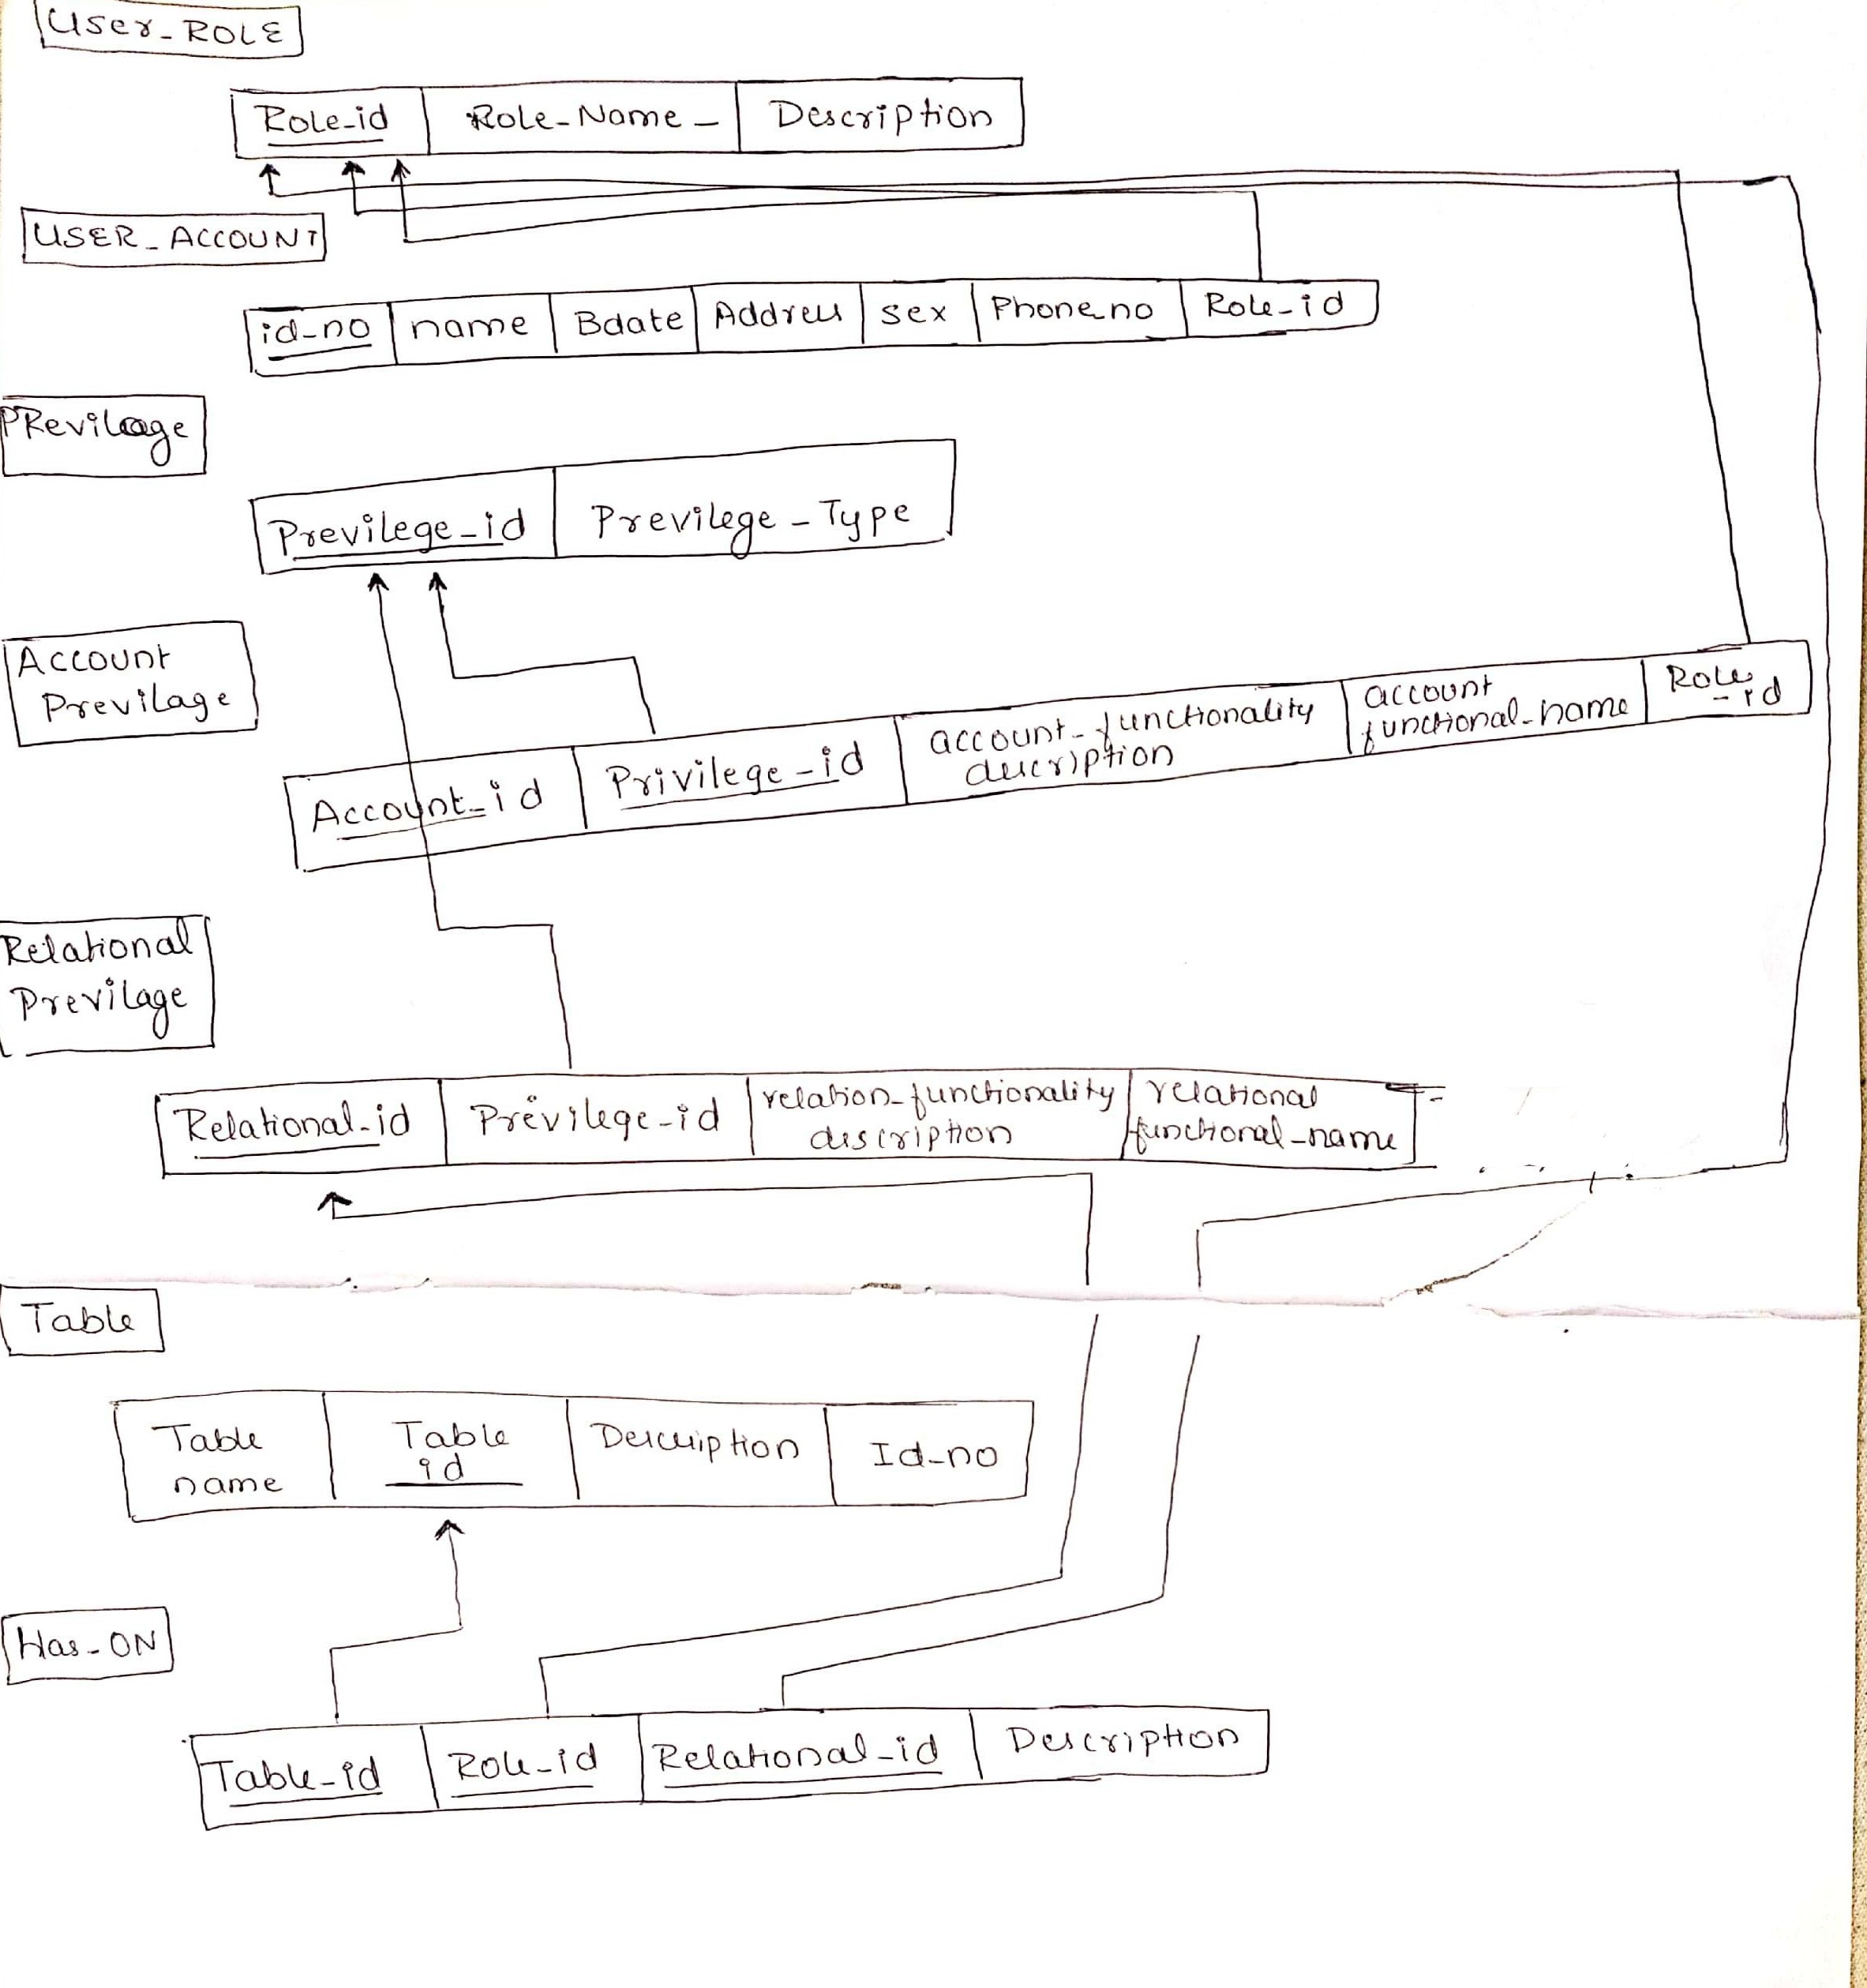 User_ROLE
Role_id Role_Name_ Description
USER_ACCOUNT
id_no name Bdate Address sex Phone_no Role_id
PRevilage
Previlege_id Previlege_Type
Account
Previlage
Account_id Privilege_id account_functionality description account functional_name Role_id
Relational
Previlage
Relational_id Previlege_id relation_functionality discription relational functional_name
Table
Table name Table id Description Id_no
Has_ON
Table_id Role_id Relational_id Description